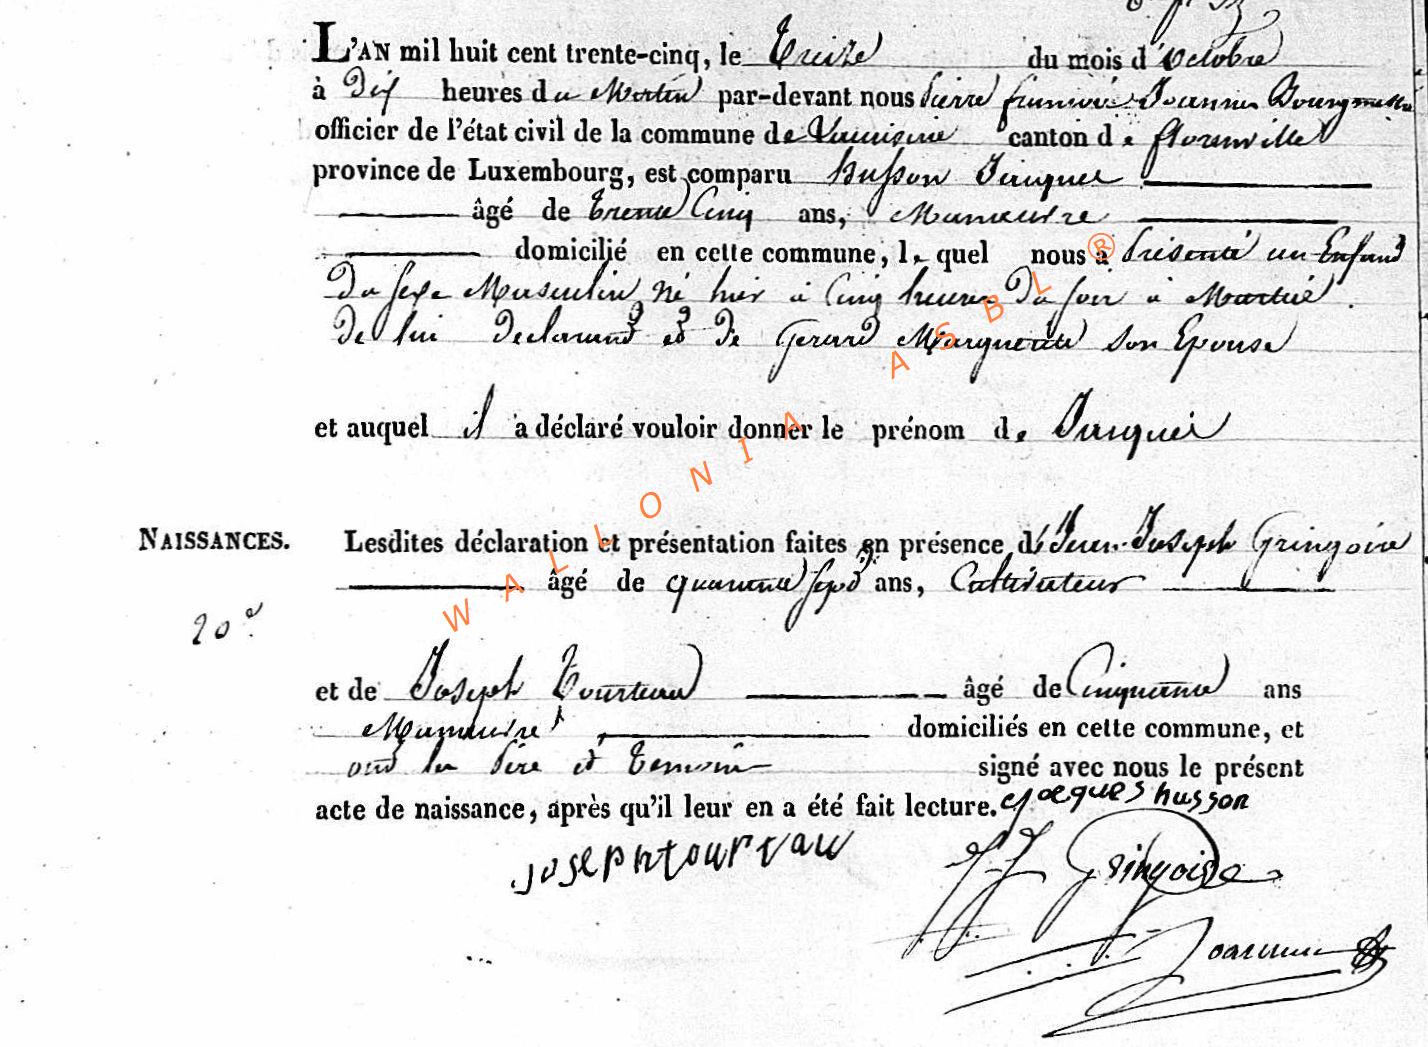 L'AN mil huit cent trente-cinq, le Treize du mois d'Octobre
à Dix heures du Matin par-devant nous Pierre françois Joannes Bourgmestre
officier de l'état civil de la commune de canton de florenville
province de Luxembourg, est comparu husson Jacques
âgé de trente Cinq ans, Manœuvre
domicilié en cette commune, le quel nous a Présenté un Enfand
Du sexe Masculin, Né hier à Cinq heures Du soir à Martué
De lui Declarand et De Gerard Marguerite son Epouse
et auquel il a déclaré vouloir donner le prénom de Jacques
NAISSANCES. Lesdites déclaration et présentation faites en présence de Jean-Joseph Gringoire
âgé de quarante sept ans, Cultivateur
20e
et de Joseph Tourteau âgé de Cinquante ans
Manœuvre domiciliés en cette commune, et
ont les Père et temoins signé avec nous le présent
acte de naissance, après qu'il leur en a été fait lecture. jacques husson
joseph tourtau
J J Gringoire
Joannes
WALLONIA ASBL ®